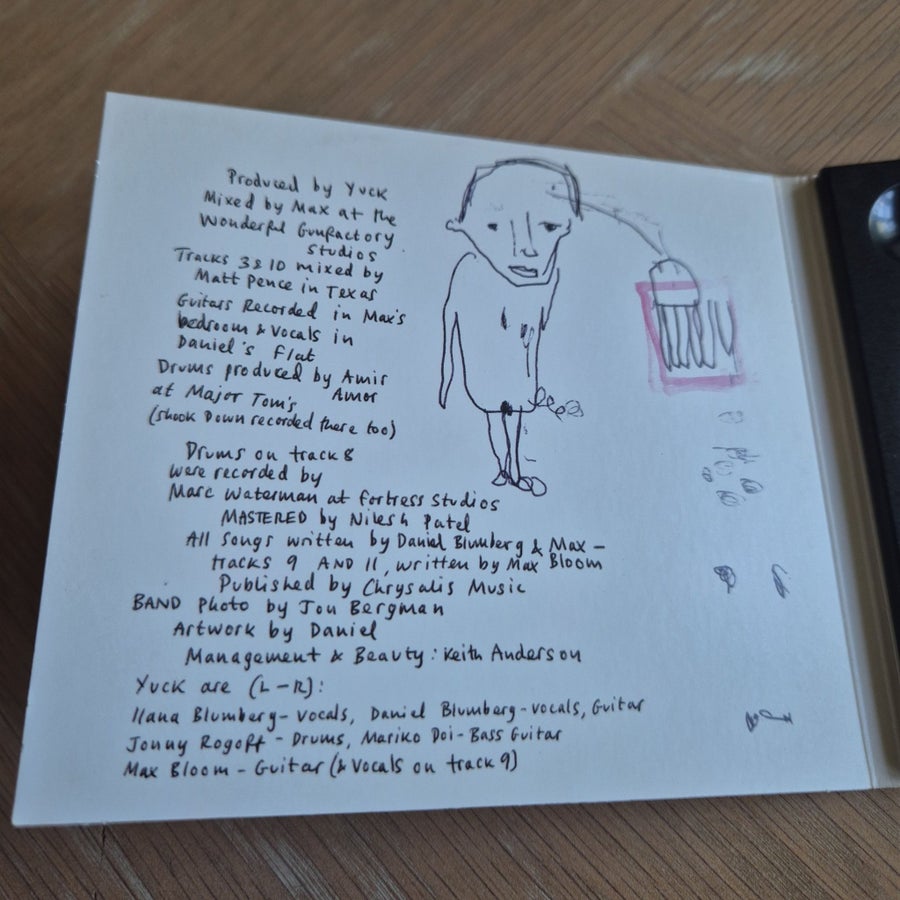 Produced by Yuck
Mixed by Max at the
Wonderful Gunfactory
Studios
Tracks 3 & 10 mixed by
Matt Pence in Texas
Guitars Recorded in Max's
bedroom & Vocals in
Daniel's Flat
Drums produced by Amir
at Major Tom's Amor
(Shook Down recorded there too)
Drums on track 8
were recorded by
Marc Waterman at Fortress Studios
MASTERED by Nilesh Patel
All songs written by Daniel Blumberg & Max –
tracks 9 AND 11, written by Max Bloom
Published by Chrysalis Music
BAND Photo by Jon Bergman
Artwork by Daniel
Management & Beauty: Keith Anderson
Yuck are (L–R):
Ilana Blumberg – vocals, Daniel Blumberg – vocals, Guitar
Jonny Rogoff – Drums, Mariko Doi – Bass Guitar
Max Bloom – Guitar (& Vocals on track 9)